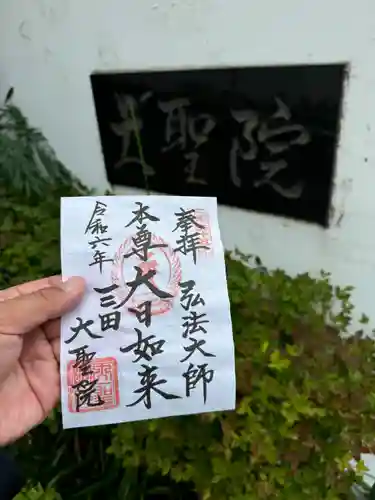 大聖院
奉拝
弘法大師
本尊
大日如来
令和六年
三田
大聖院